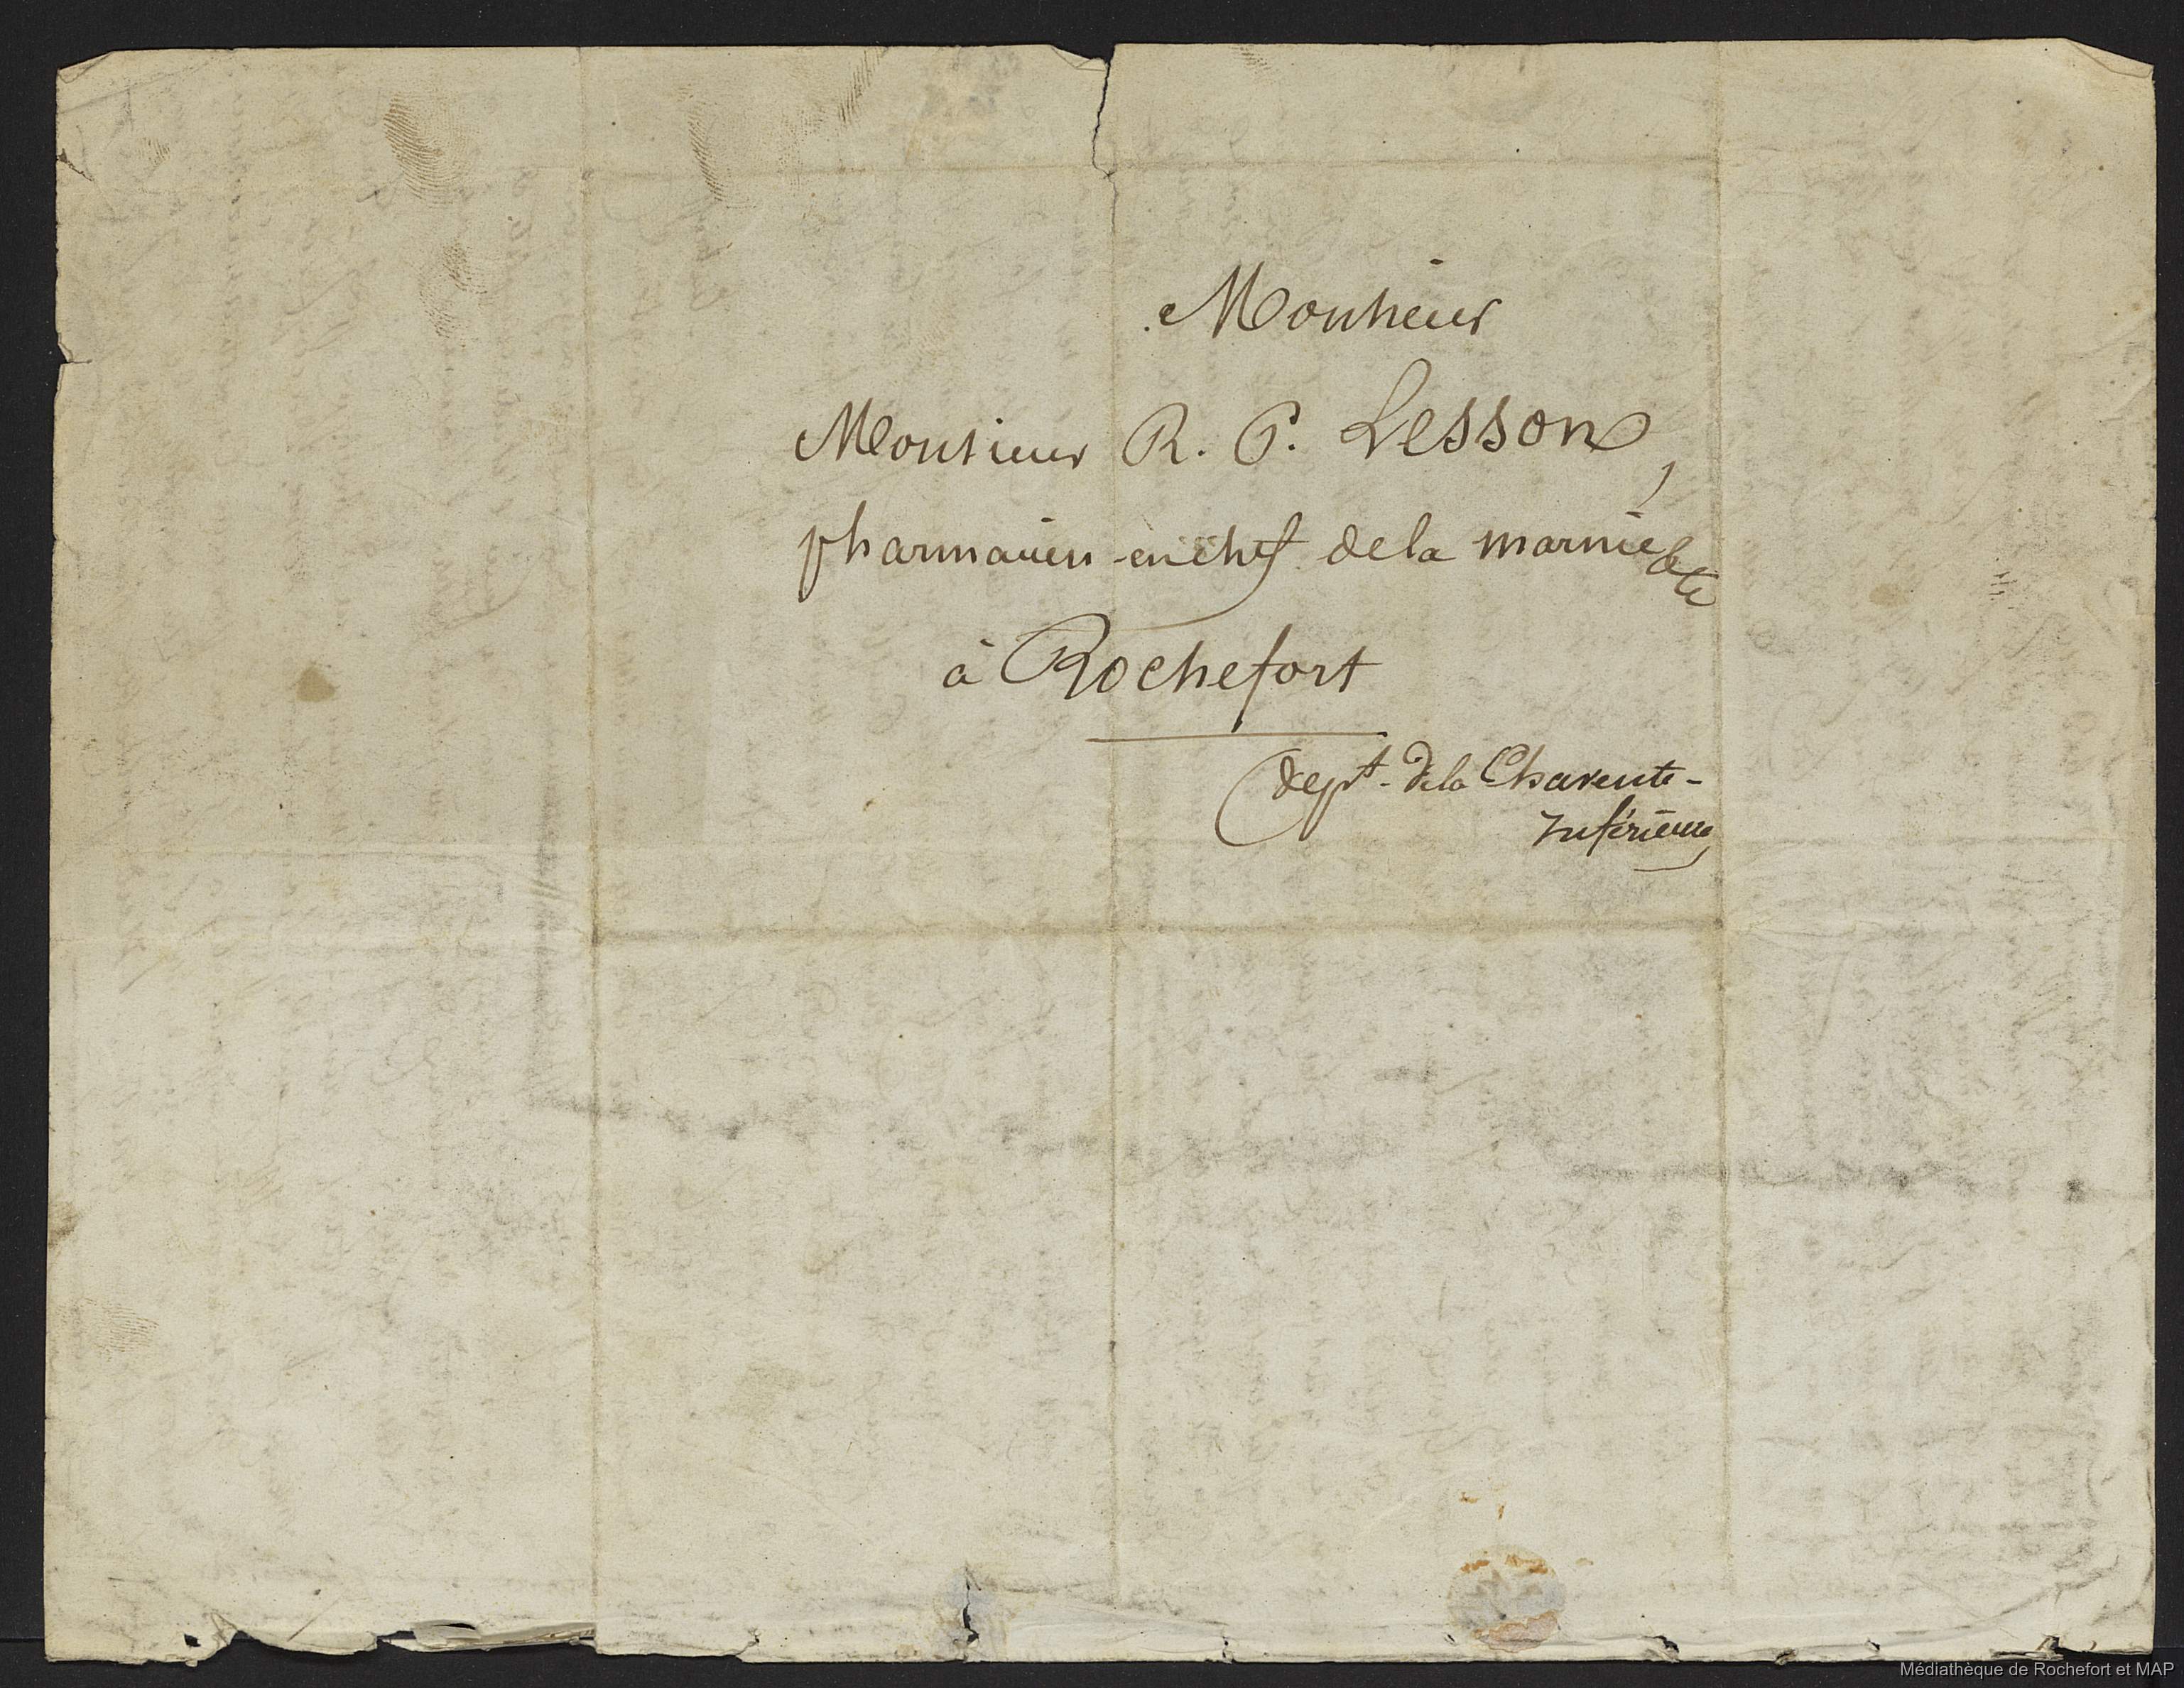 Monsieur
Monsieur R. P. Lesson,
pharmacien en chef de la marine &c &c
à Rochefort
(dept. de la Charente-
Inférieure)
Médiathèque de Rochefort et MAP